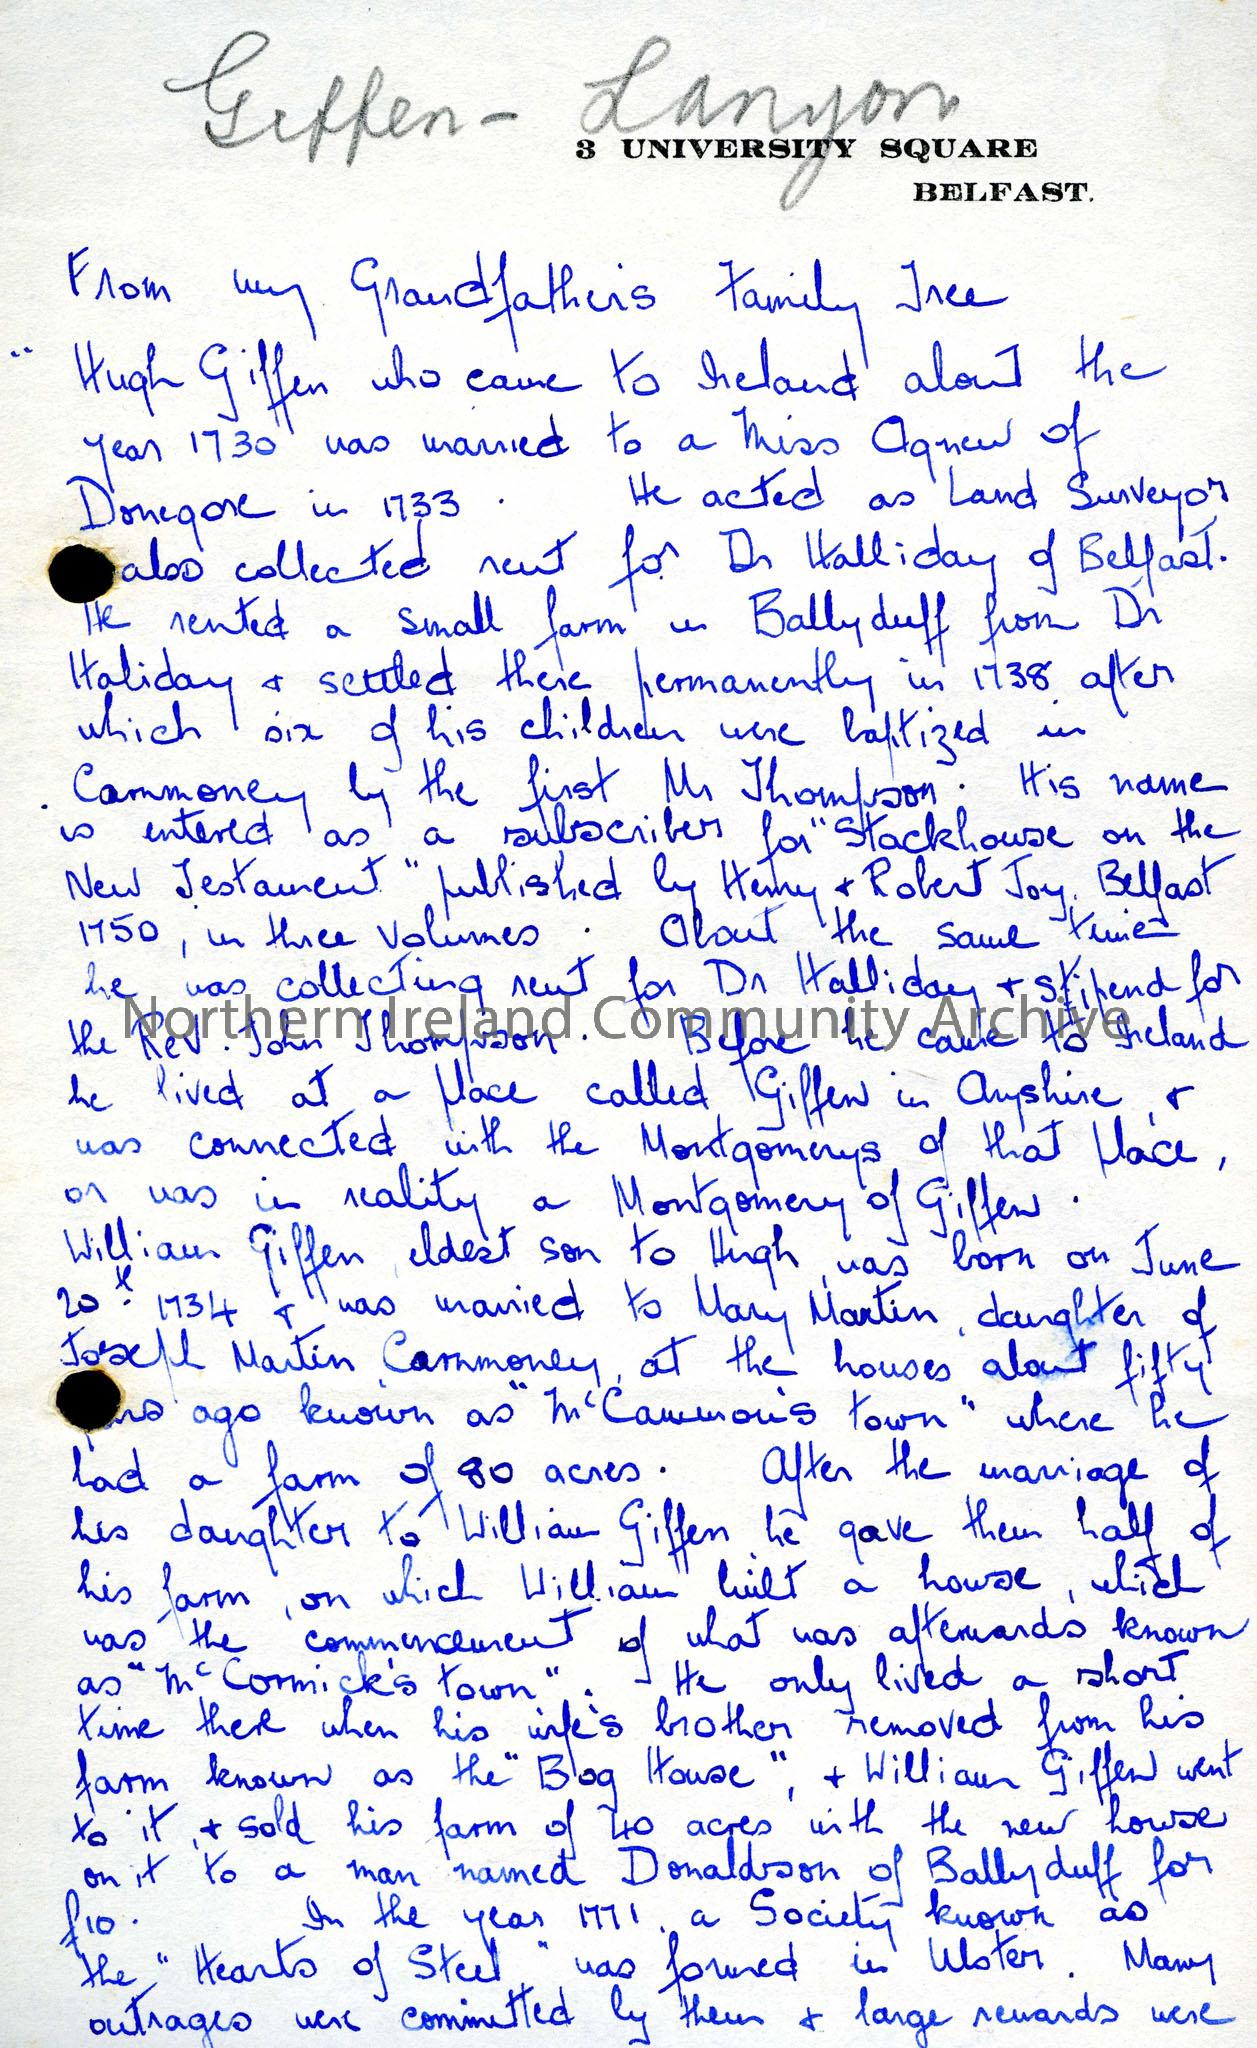 Giffen - Lanyon
3 UNIVERSITY SQUARE
BELFAST.
From my Grandfather's Family Tree
" Hugh Giffen who came to Ireland about the
year 1730 was married to a Miss Agnew of
Donegore in 1733. He acted as Land Surveyor
also collected rent for Dr Halliday of Belfast.
He rented a small farm in Ballyduff from Dr
Haliday & settled there permanently in 1738 after
which six of his children were baptized in
Carnmoney by the first Mr Thompson. His name
is entered as a subscriber for "Stackhouse on the
New Testament" published by Henry & Robert Joy, Belfast
1750, in three volumes. About the same time
he was collecting rent for Dr Halliday & stipend for
the Rev. John Thompson. Before he came to Ireland
he lived at a place called Giffen in Ayrshire, &
was connected with the Montgomerys of that place,
or was in reality a Montgomery of Giffen.
William Giffen, eldest son to Hugh, was born on June
20th 1734 & was married to Mary Martin, daughter of
Joseph Martin Carnmoney, at the houses about fifty
years ago known as "McCammon's town" where he
had a farm of 80 acres. After the marriage of
his daughter to William Giffen he gave them half of
his farm, on which William built a house, which
was the commencement of what was afterwards known
as "McCormick's town". He only lived a short
time there when his wife's brother removed from his
farm known as the "Bog House", & William Giffen went
to it, & sold his farm of 40 acres with the new house
on it to a man named Donaldson of Ballyduff for
£10. In the year 1771, a Society known as
the "Hearts of Steel" was formed in Ulster. Many
outrages were committed by them & large rewards were
Northern Ireland Community Archive